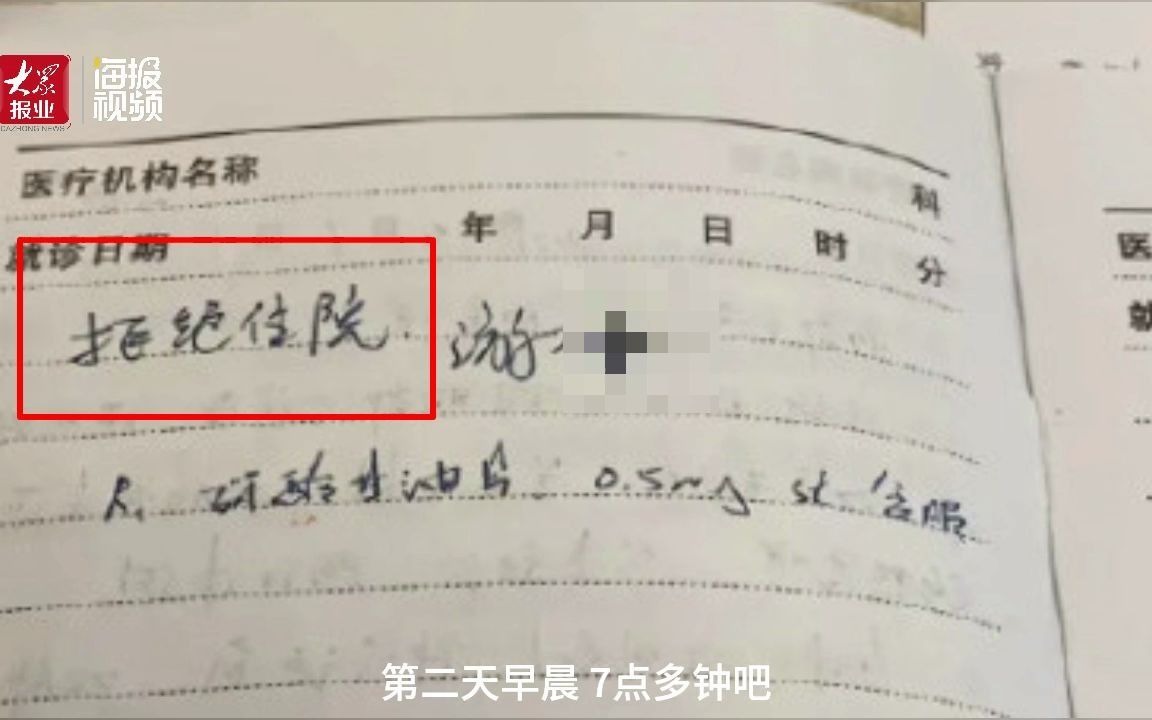 大众报业
DAZHONG NEWS
海报视频
医疗机构名称 科
就诊日期 年 月 日 时 分
拒绝住院. 游
R. 硝酸甘油片 0.5mg st 含服
医
就
第二天早晨 7点多钟吧